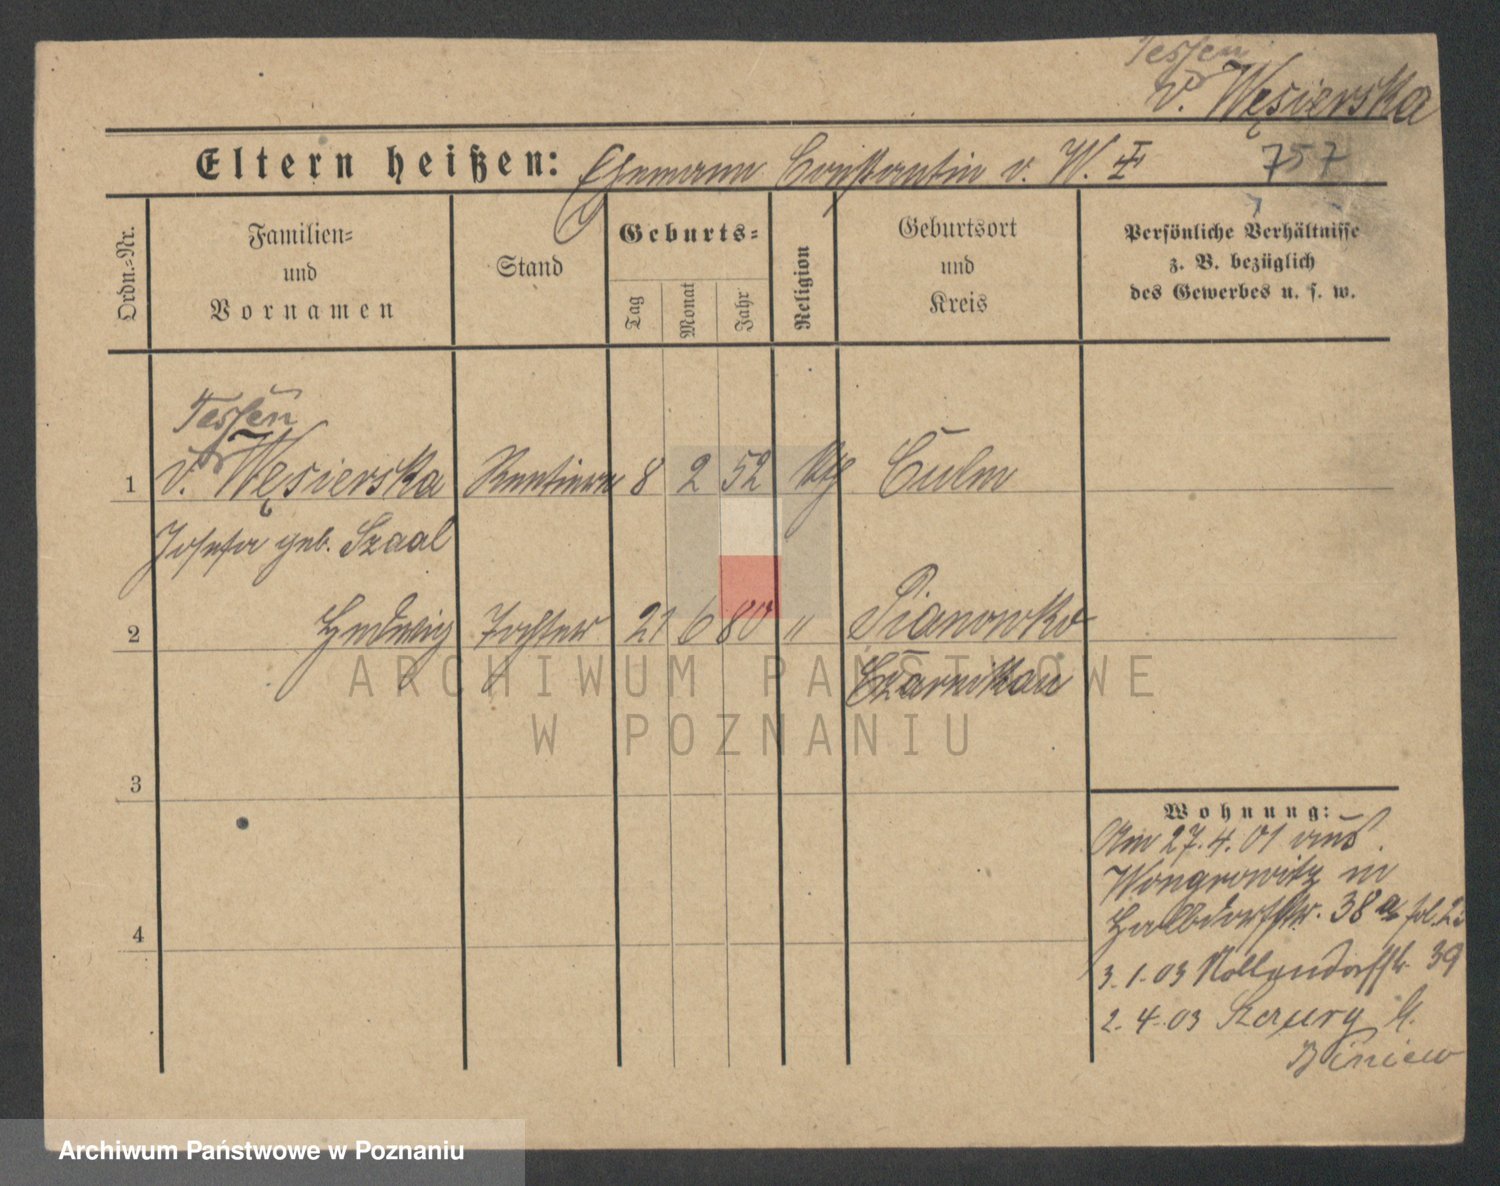 Tessen
v. Węsierska
Eltern heißen: Ehemann Constantin v. W. ‡ 757
Ordn.-Nr.
Familien- und Vornamen
Stand
Geburts-
Tag
Monat
Jahr
Religion
Geburtsort und Kreis
Persönliche Verhältnisse
z. B. bezüglich
des Gewerbes u. s. w.
Tessen
1 v. Węsierska Rentiere 8 2 52 kth Culm
Josefa geb. Szaal
2 Hedwig Tochter 21 6 80 " Pianowko
Czarnikau
ARCHIWUM PAŃSTWOWE
W POZNANIU
3
4
Wohnung:
Am 27.4.01 aus
Wongrowitz in
Halbdorfstr. 38 a fol. 25
3.1.03 Nollendorfstr. 39
2.4.03
Biniew
Archiwum Państwowe w Poznaniu